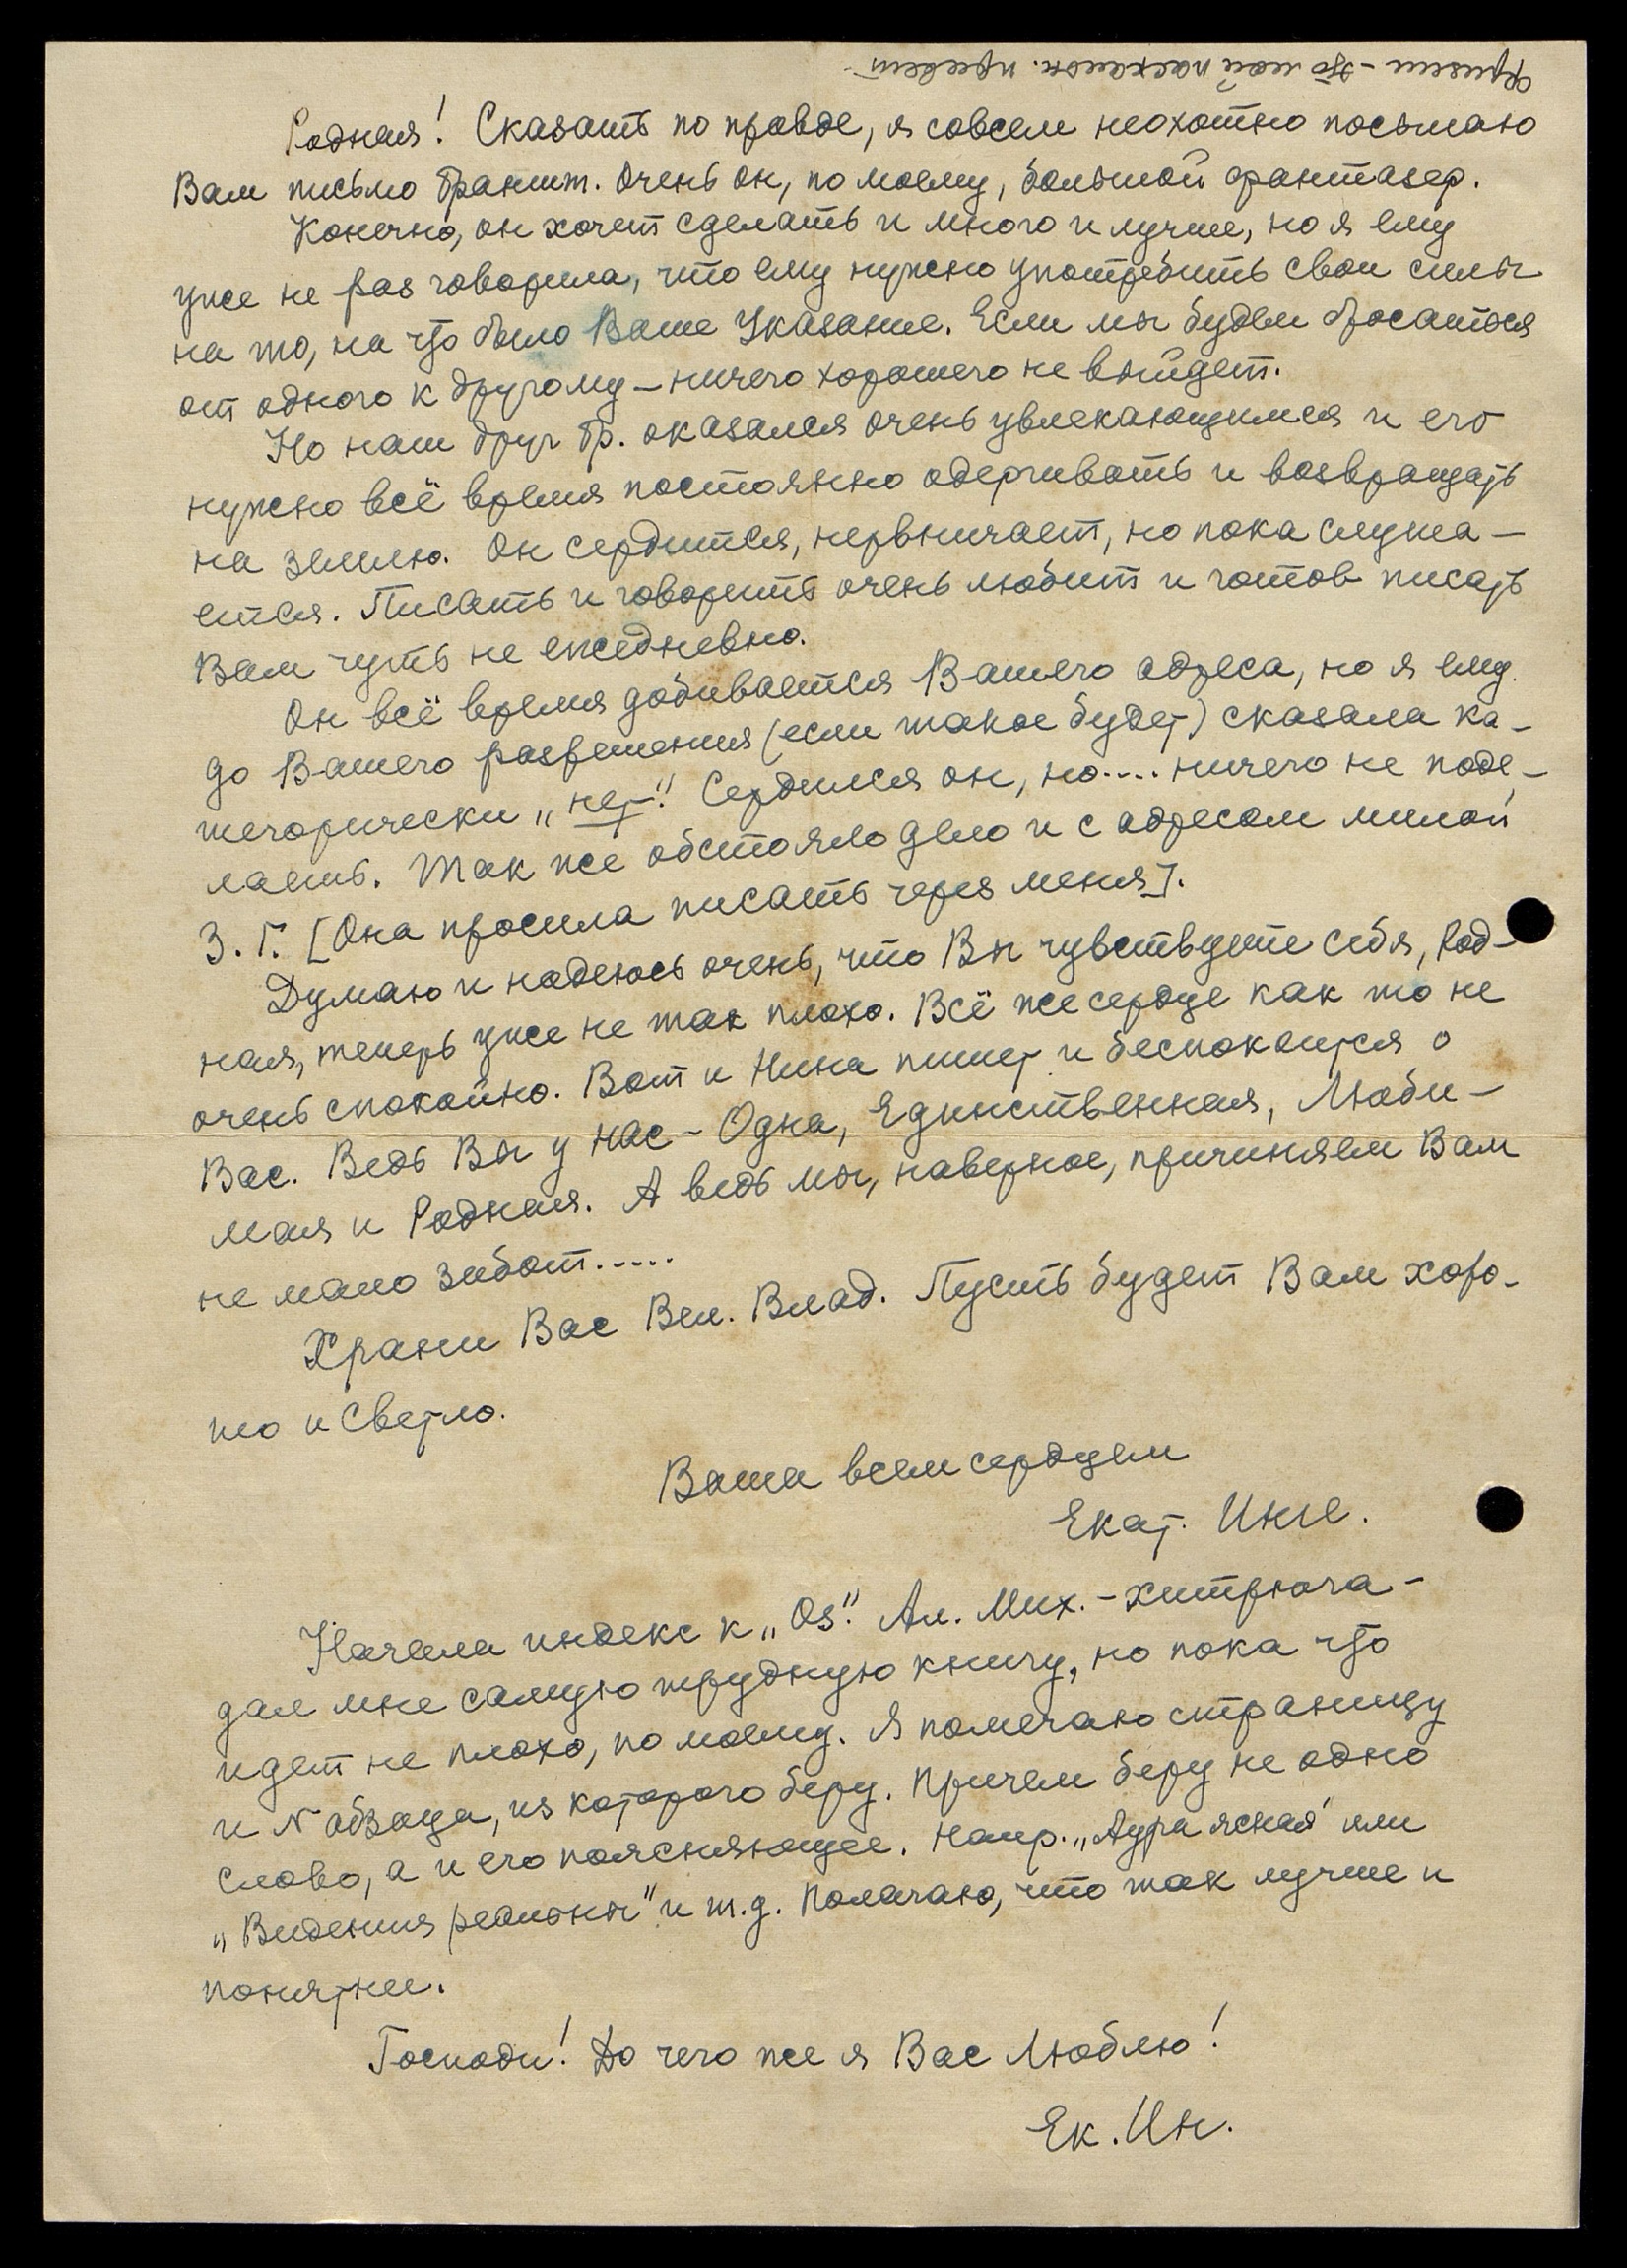 Фризит – это мой пасхальн. привет
Родная! Сказать по правде, я совсем неохотно посылаю
Вам письмо Граншт. Очень он, по моему, большой фантазер.
Конечно, он хочет сделать и много и лучше, но я ему
уже не раз говорила, что ему нужно употребить свои силы
на то, на что было Ваше Указание. Если мы будем бросаться
от одного к другому – ничего хорошего не выйдет.
Но наш друг Гр. оказался очень увлекающимся и его
нужно всё время постоянно одергивать и возвращать
на землю. Он сердится, нервничает, но пока слуша–
ется. Писать и говорить очень любит и готов писать
Вам чуть не ежедневно.
Он всё время добивается Вашего адреса, но я ему
до Вашего разрешения (если такое будет) сказала ка–
тегорически „нет“. Сердился он, но.... ничего не поде–
лаешь. Так же обстояло дело и с адресом милой
З. Г. [Она просила писать через меня].
Думаю и надеюсь очень, что Вы чувствуете себя, Род–
ная, теперь уже не так плохо. Всё же сердце как то не
очень спокойно. Вот и Нина пишет и беспокоится о
Вас. Ведь Вы у нас – Одна, Единственная, Люби–
мая и Родная. А ведь мы, наверное, причиняем Вам
не мало забот.....
Храни Вас Вел. Влад. Пусть будет Вам хоро–
шо и Светло.
Ваша всем сердцем
Екат. Инге.
Начала индекс к „Оз“. Ал. Мих. – хитрюга –
дал мне самую трудную книгу, но пока что
идет не плохо, по моему. Я помечаю страницу
и № абзаца, из которого беру. Причем беру не одно
слово, а и его поясняющее. Напр. „Аура ясная“ или
„Видения реальны“ и т.д. Полагаю, что так лучше и
понятнее.
Господи! До чего же я Вас Люблю!
Ек. Ин.